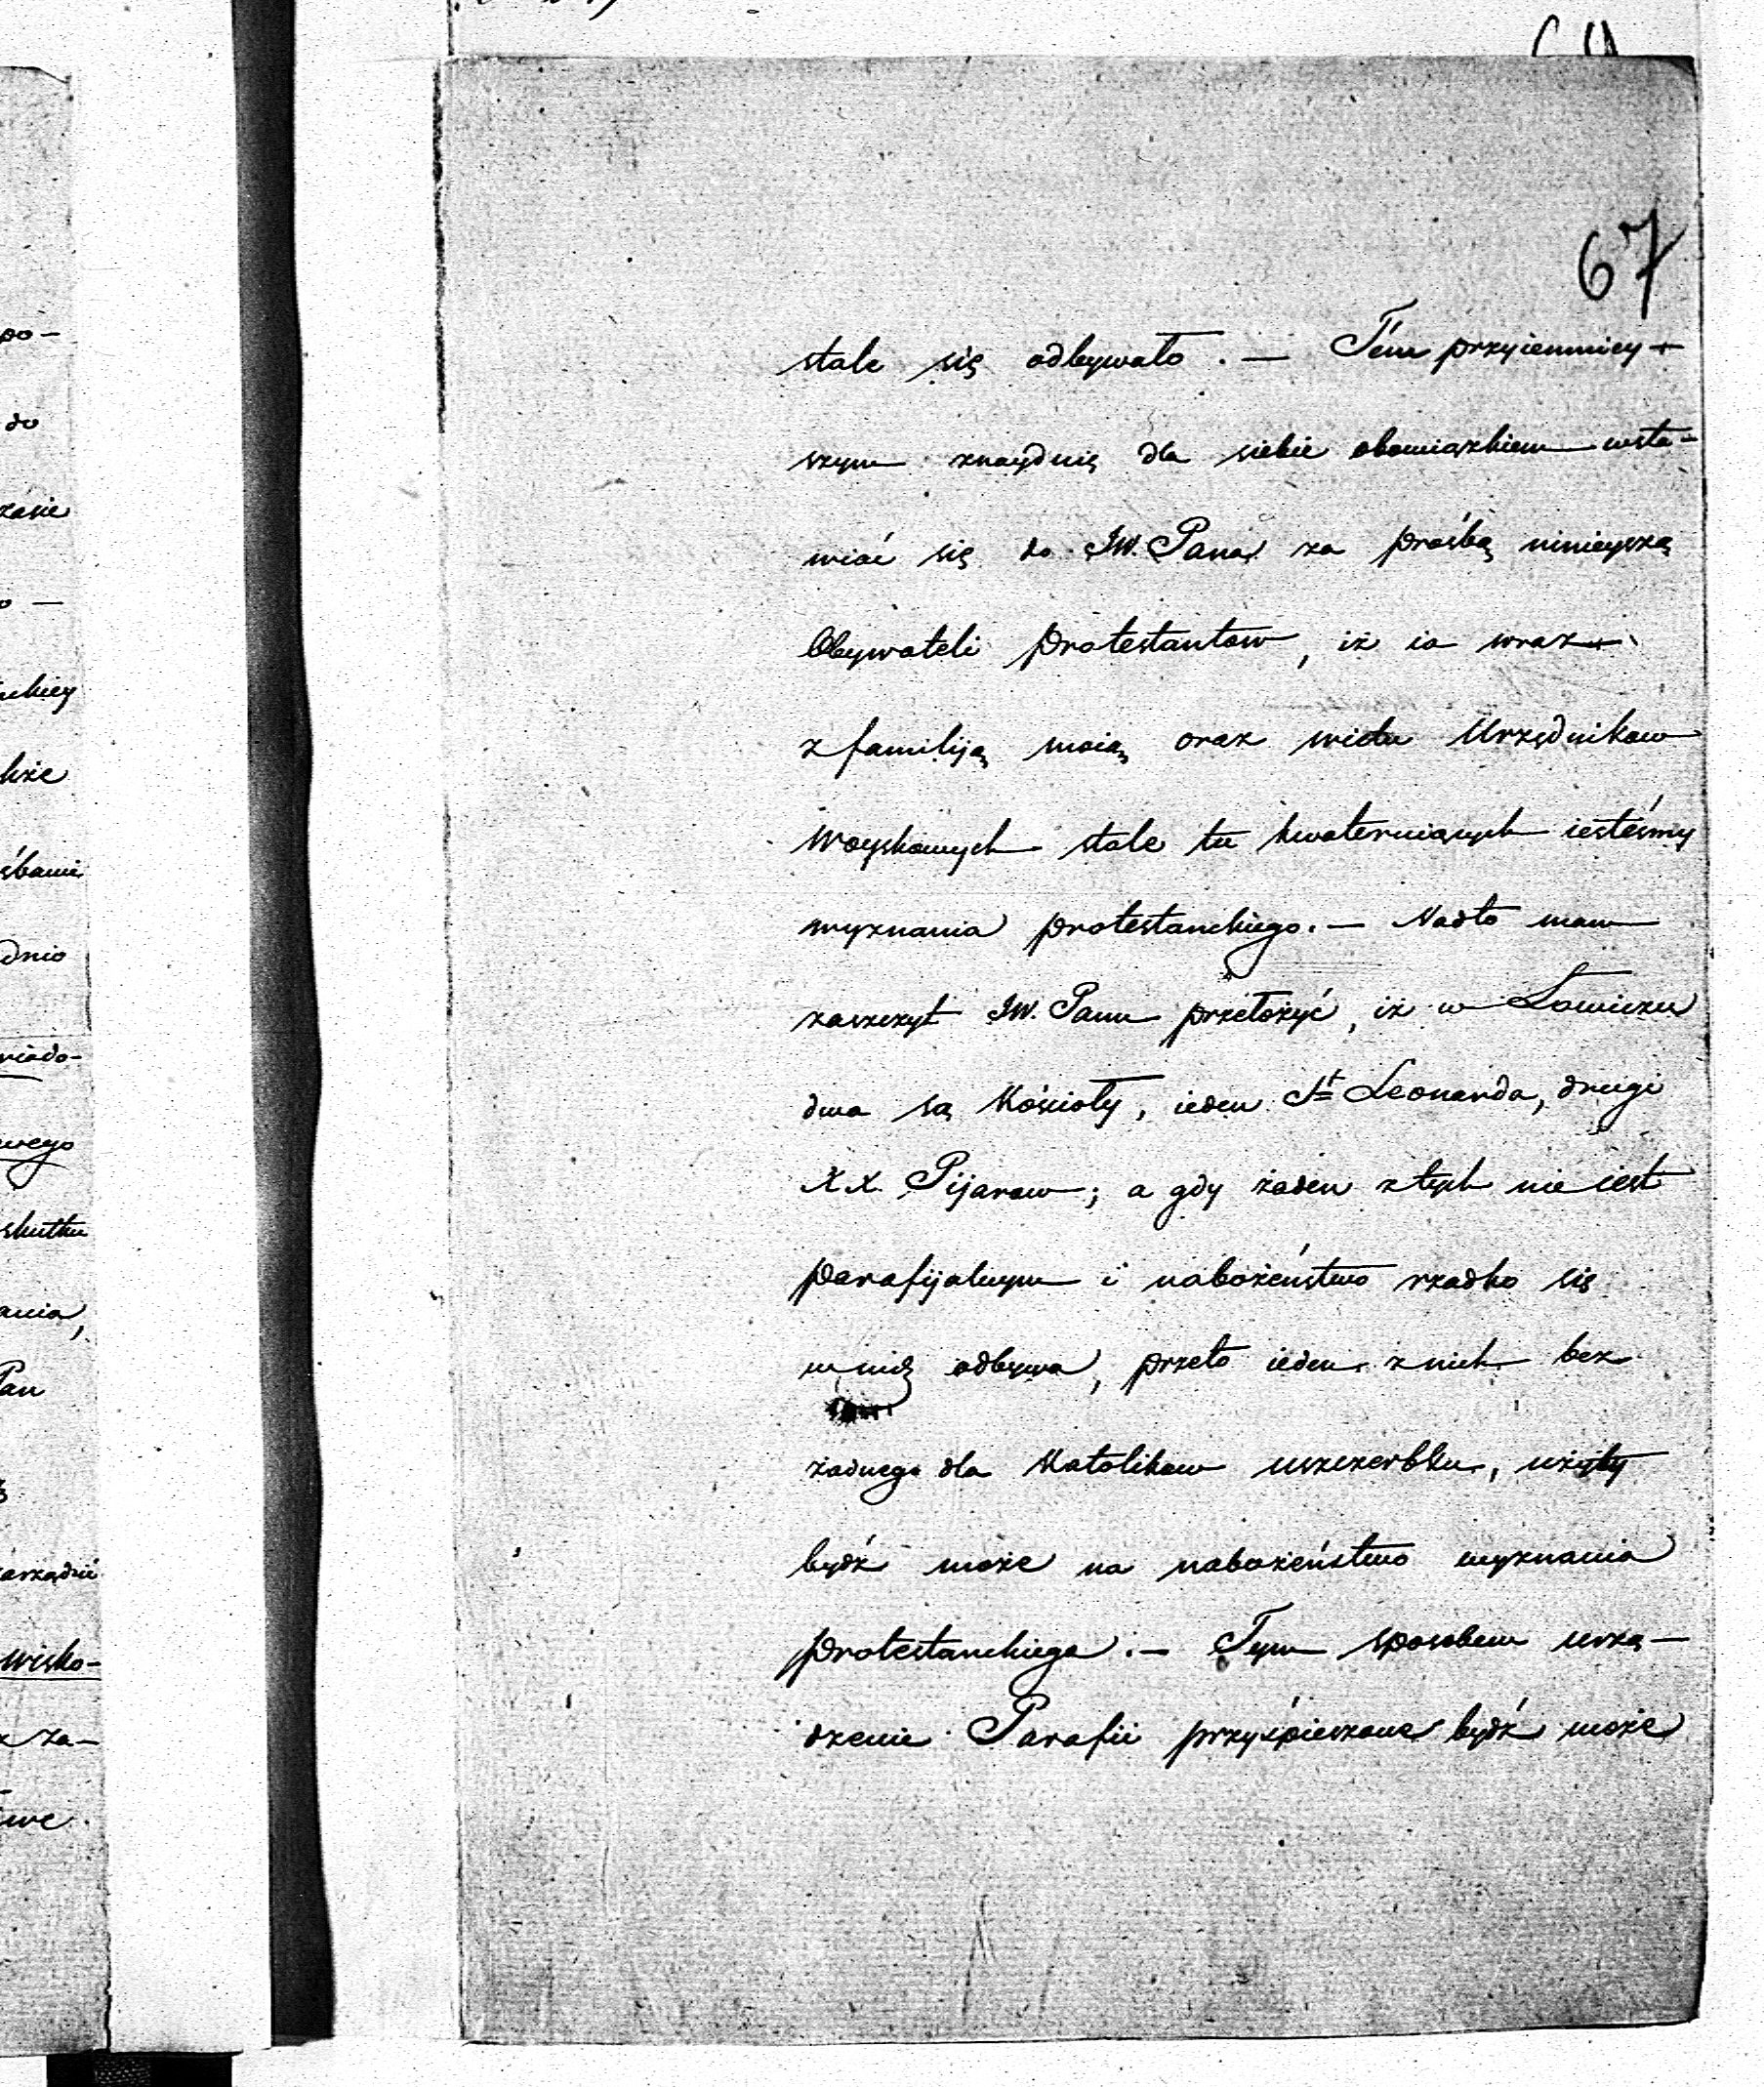 67
stale się odbywało. — Tém przyiemniey-
szym znayduię dla siebie obowiązkiem wsta-
wiać się do JW. Pana za prośbą ninieyszą
Obywateli Protestantow, iż ia wraz
z familiją moią oraz wielu Urzędnikow
Woyskowych stale tu kwateruiących iesteśmy
wyznania protestanckiego. — Nadto mam
zaszczyt JW. Panu przełożyć, iż w Łowiczu
dwa są Kościoły, ieden St Leonarda, drugi
XX. Pijarow; a gdy żaden z tych nie iest
parafijalnym i nabożeństwo rzadko się
w nich odbywa, przeto ieden z nich bez
żadnego dla Katolikow uszczerbku, użyty
bydź może na nabożeństwo wyznania
protestanckiego. — Tym sposobem urzą-
dzenie Parafii przyśpieszone bydź może
po-
do
zasie
uckiey
kże
śbami
dnio
wiado-
wego
skutku
ania,
Pan
arządzić
wisko-
za-